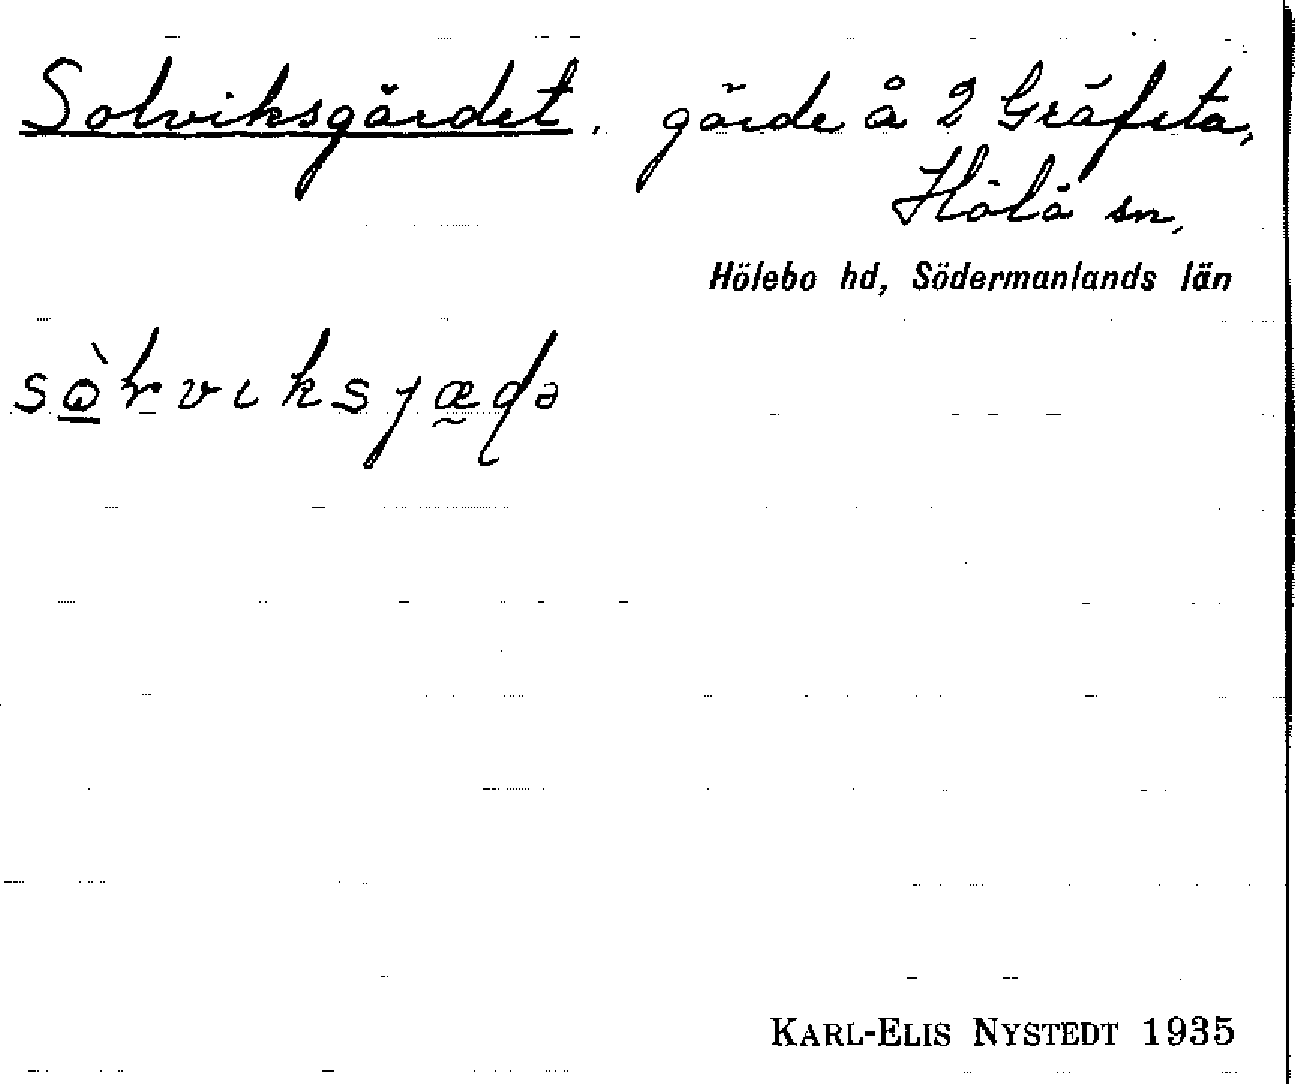 Solviksgärdet, gärde å 2 Gräfsta,
Hölö sn,
Hölebo hd, Södermanlands län
KARL-ELIS NYSTEDT 1935